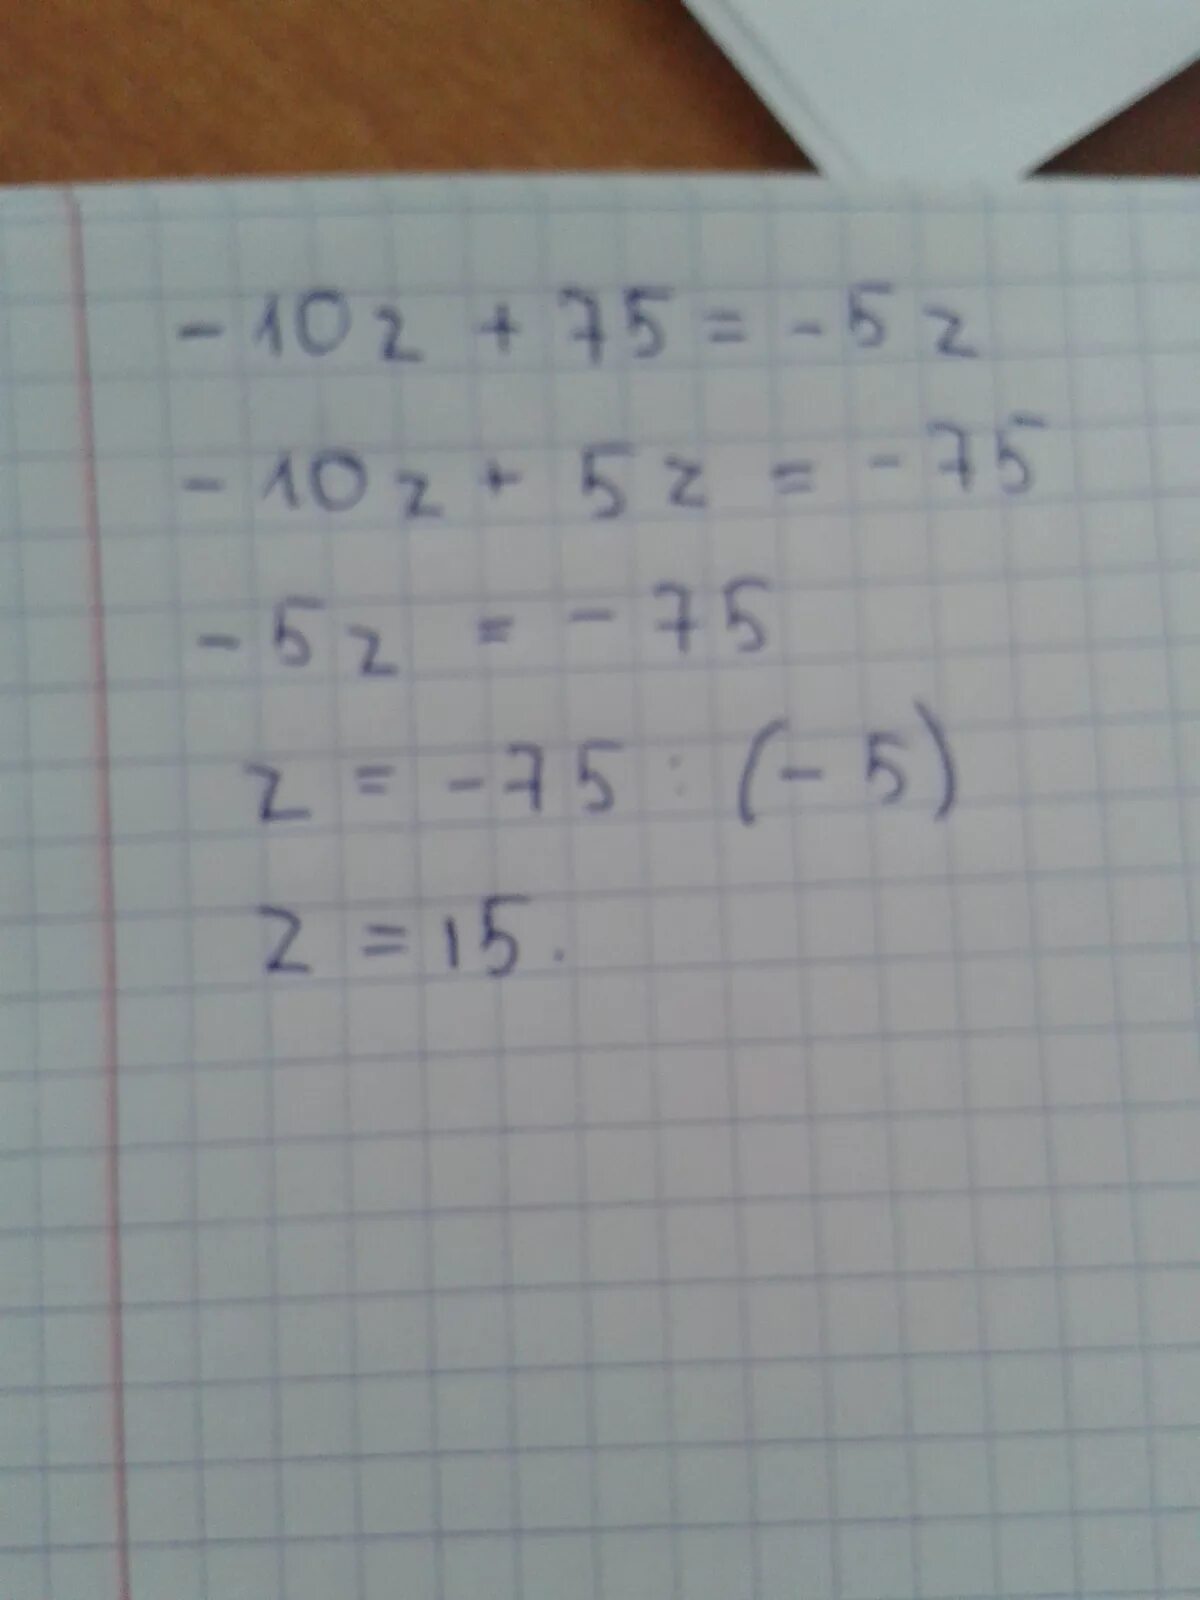 -10z + 75 = -5z
-10z + 5z = -75
-5z = -75
z = -75 : (-5)
z = 15.